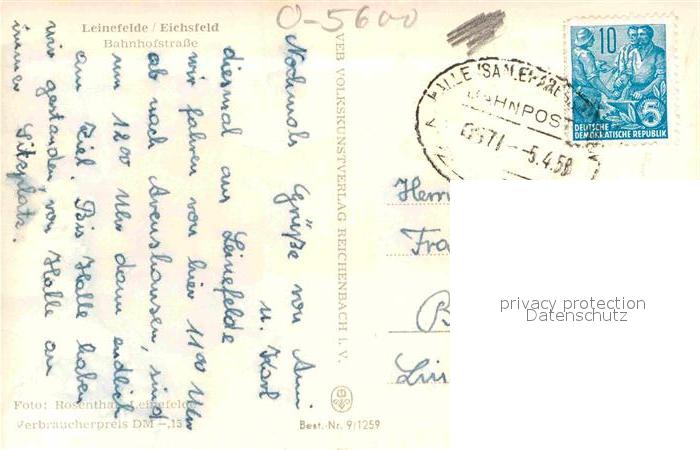 O-5600
Leinefelde / Eichsfeld
Bahnhofstraße
Nochmals Grüße von Anni
u. Karl
diesmal aus Leinefelde
wir fahren von hier 11⁰⁰ Uhr
ab nach Arenshausen, sind
um 12⁰⁰ Uhr dann endlich
am Ziel. Bis Halle haben
wir gestanden, von Halle an
immer Sitzplatz.
Foto: Rosenthal, Leinefelde
Verbraucherpreis DM -,15
VEB VOLKSKUNSTVERLAG REICHENBACH i. V.
Best.-Nr. 9/1259
HALLE (SAALE)
BAHNPOST
5.4.58
10
5
DEUTSCHE
DEMOKRATISCHE REPUBLIK
Herrn
Fra
B
Lin
privacy protection
Datenschutz